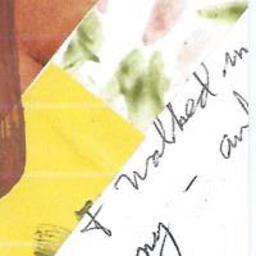 I walked in
my - and